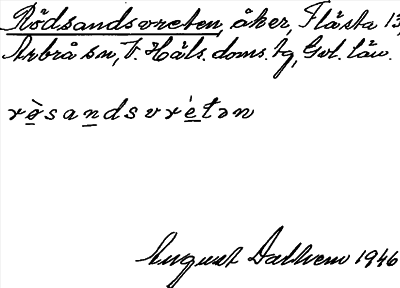 Rödsandsvreten, åker, Flästa 13,
Arbrå sn, V. Häls. doms. tg, Gvl. län.
rǜsandsvre̍tən
August Dalhem 1946